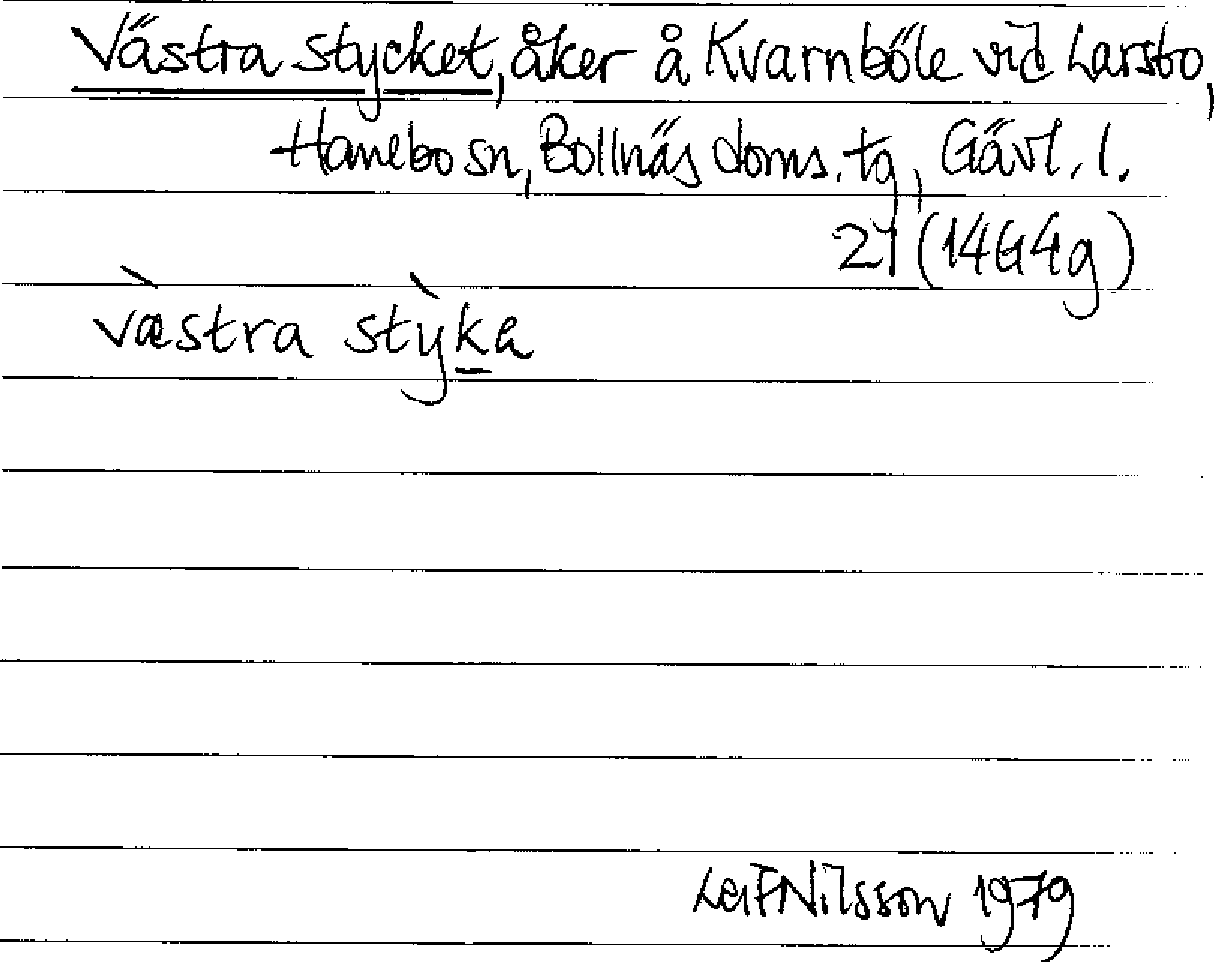 Västra stycket, åker å Kvarnböle vid Larsbo,
Hanebo sn, Bollnäs doms. tg, Gävl. l.
21 (14G4g)
væ̀stra stỳk̲a
Leif Nilsson 1979